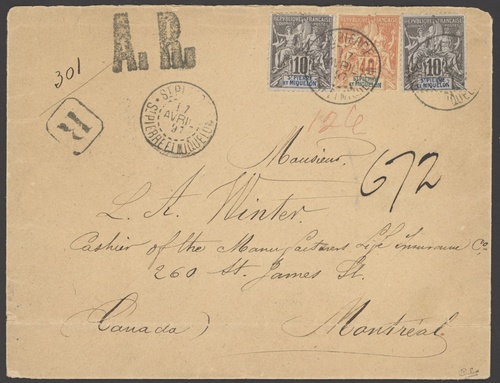 A. R.
301
R
REPUBLIQUE FRANÇAISE
10
ST PIERRE ET MIQUELON
REPUBLIQUE FRANÇAISE
40
REPUBLIQUE FRANÇAISE
10
ST PIERRE ET MIQUELON
17
AVRIL
97
ST PIERRE ET MIQUELON
Monsieur
672
L. A. Winter
Cashier of the Manufacturers Life Insurance Co
260 St. James St.
Canada) Montréal